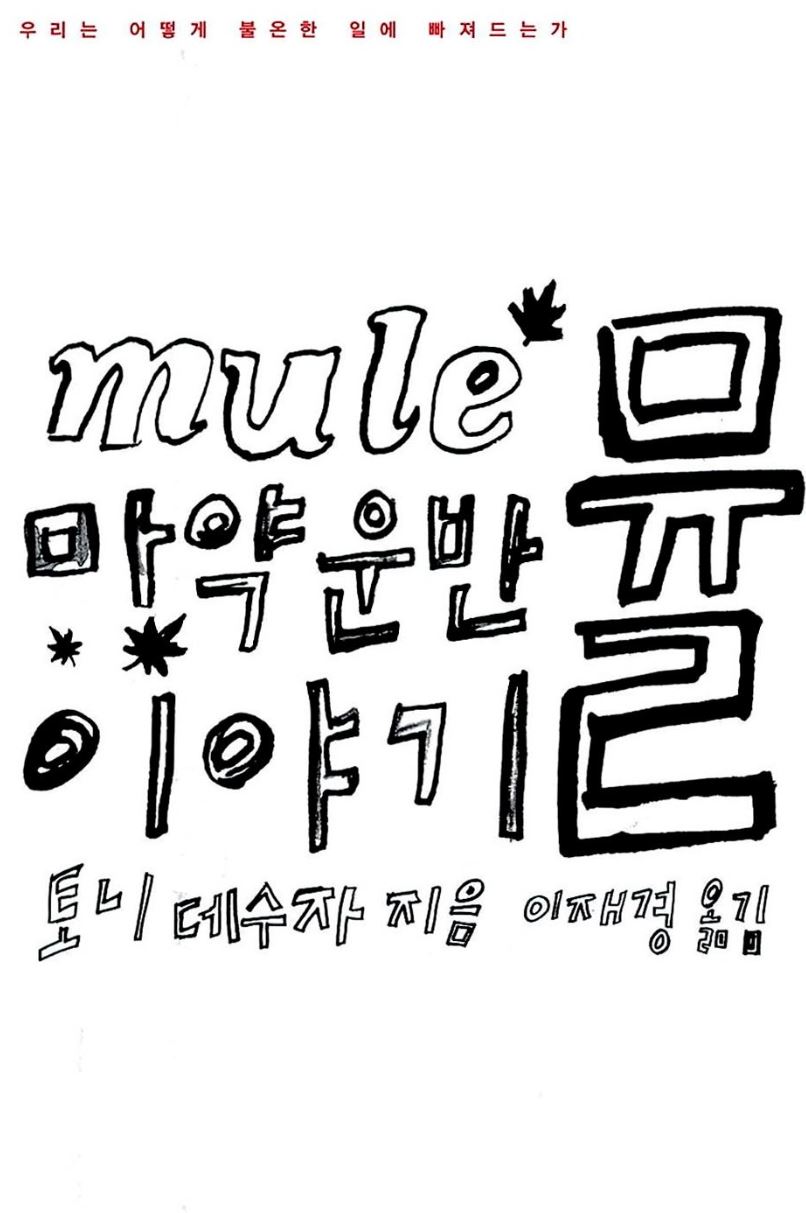 우리는 어떻게 불온한 일에 빠져드는가
mule 뮬
마약 운반
이야기
토니 데수자 지음 이재경 옮김